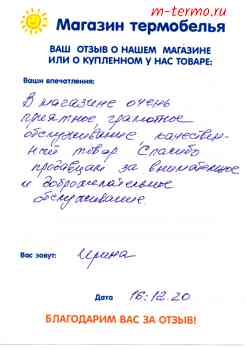 m-termo.ru
Магазин термобелья
ВАШ ОТЗЫВ О НАШЕМ МАГАЗИНЕ
ИЛИ О КУПЛЕННОМ У НАС ТОВАРЕ:
Ваши впечатления:
В магазине очень
приятное грамотное
обслуживание, качествен-
ный товар. Спасибо
продавцам за внимательное
и доброжелательное
обслуживание.
Вас зовут: Ирина
Дата 16.12.20
БЛАГОДАРИМ ВАС ЗА ОТЗЫВ!